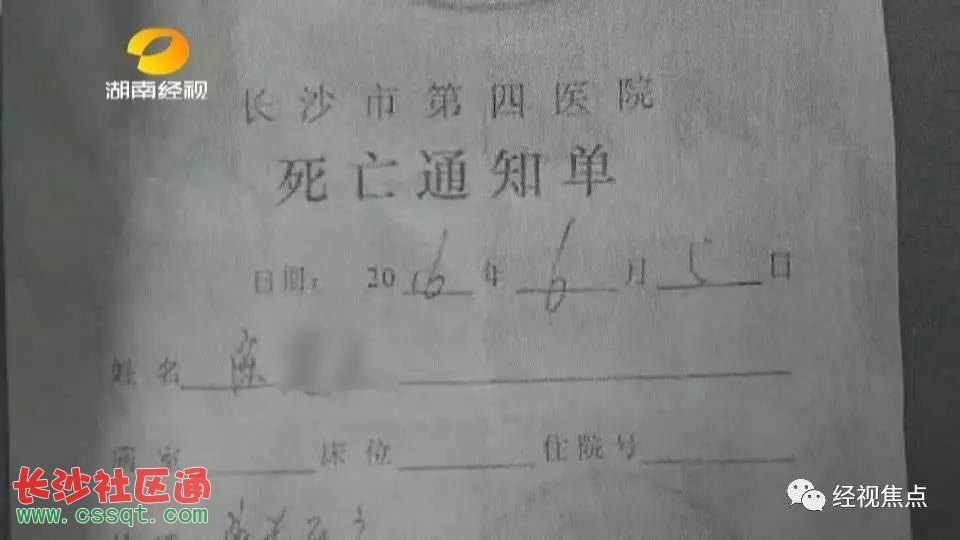 湖南经视
长沙市第四医院
死亡通知单
日期: 2016年 6 月 5 日
姓名
床位 住院号
长沙社区通
www.cssqt.com
经视焦点